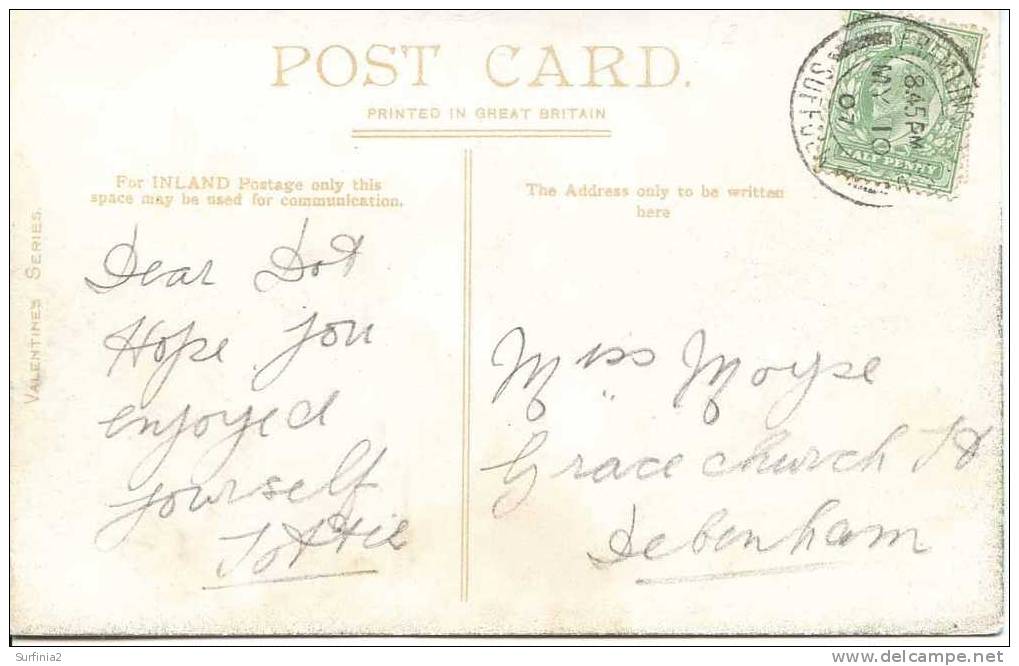 POST CARD.
PRINTED IN GREAT BRITAIN
For INLAND Postage only this
space may be used for communication.
The Address only to be written
here
VALENTINE'S SERIES.
8.45 PM
MY 10
07
HALF PENNY
Dear Dot
Hope you
enjoyed
yourself
Tottie
Miss Moyse
Gracechurch St
Debenham
Surfinia2
www.delcampe.net